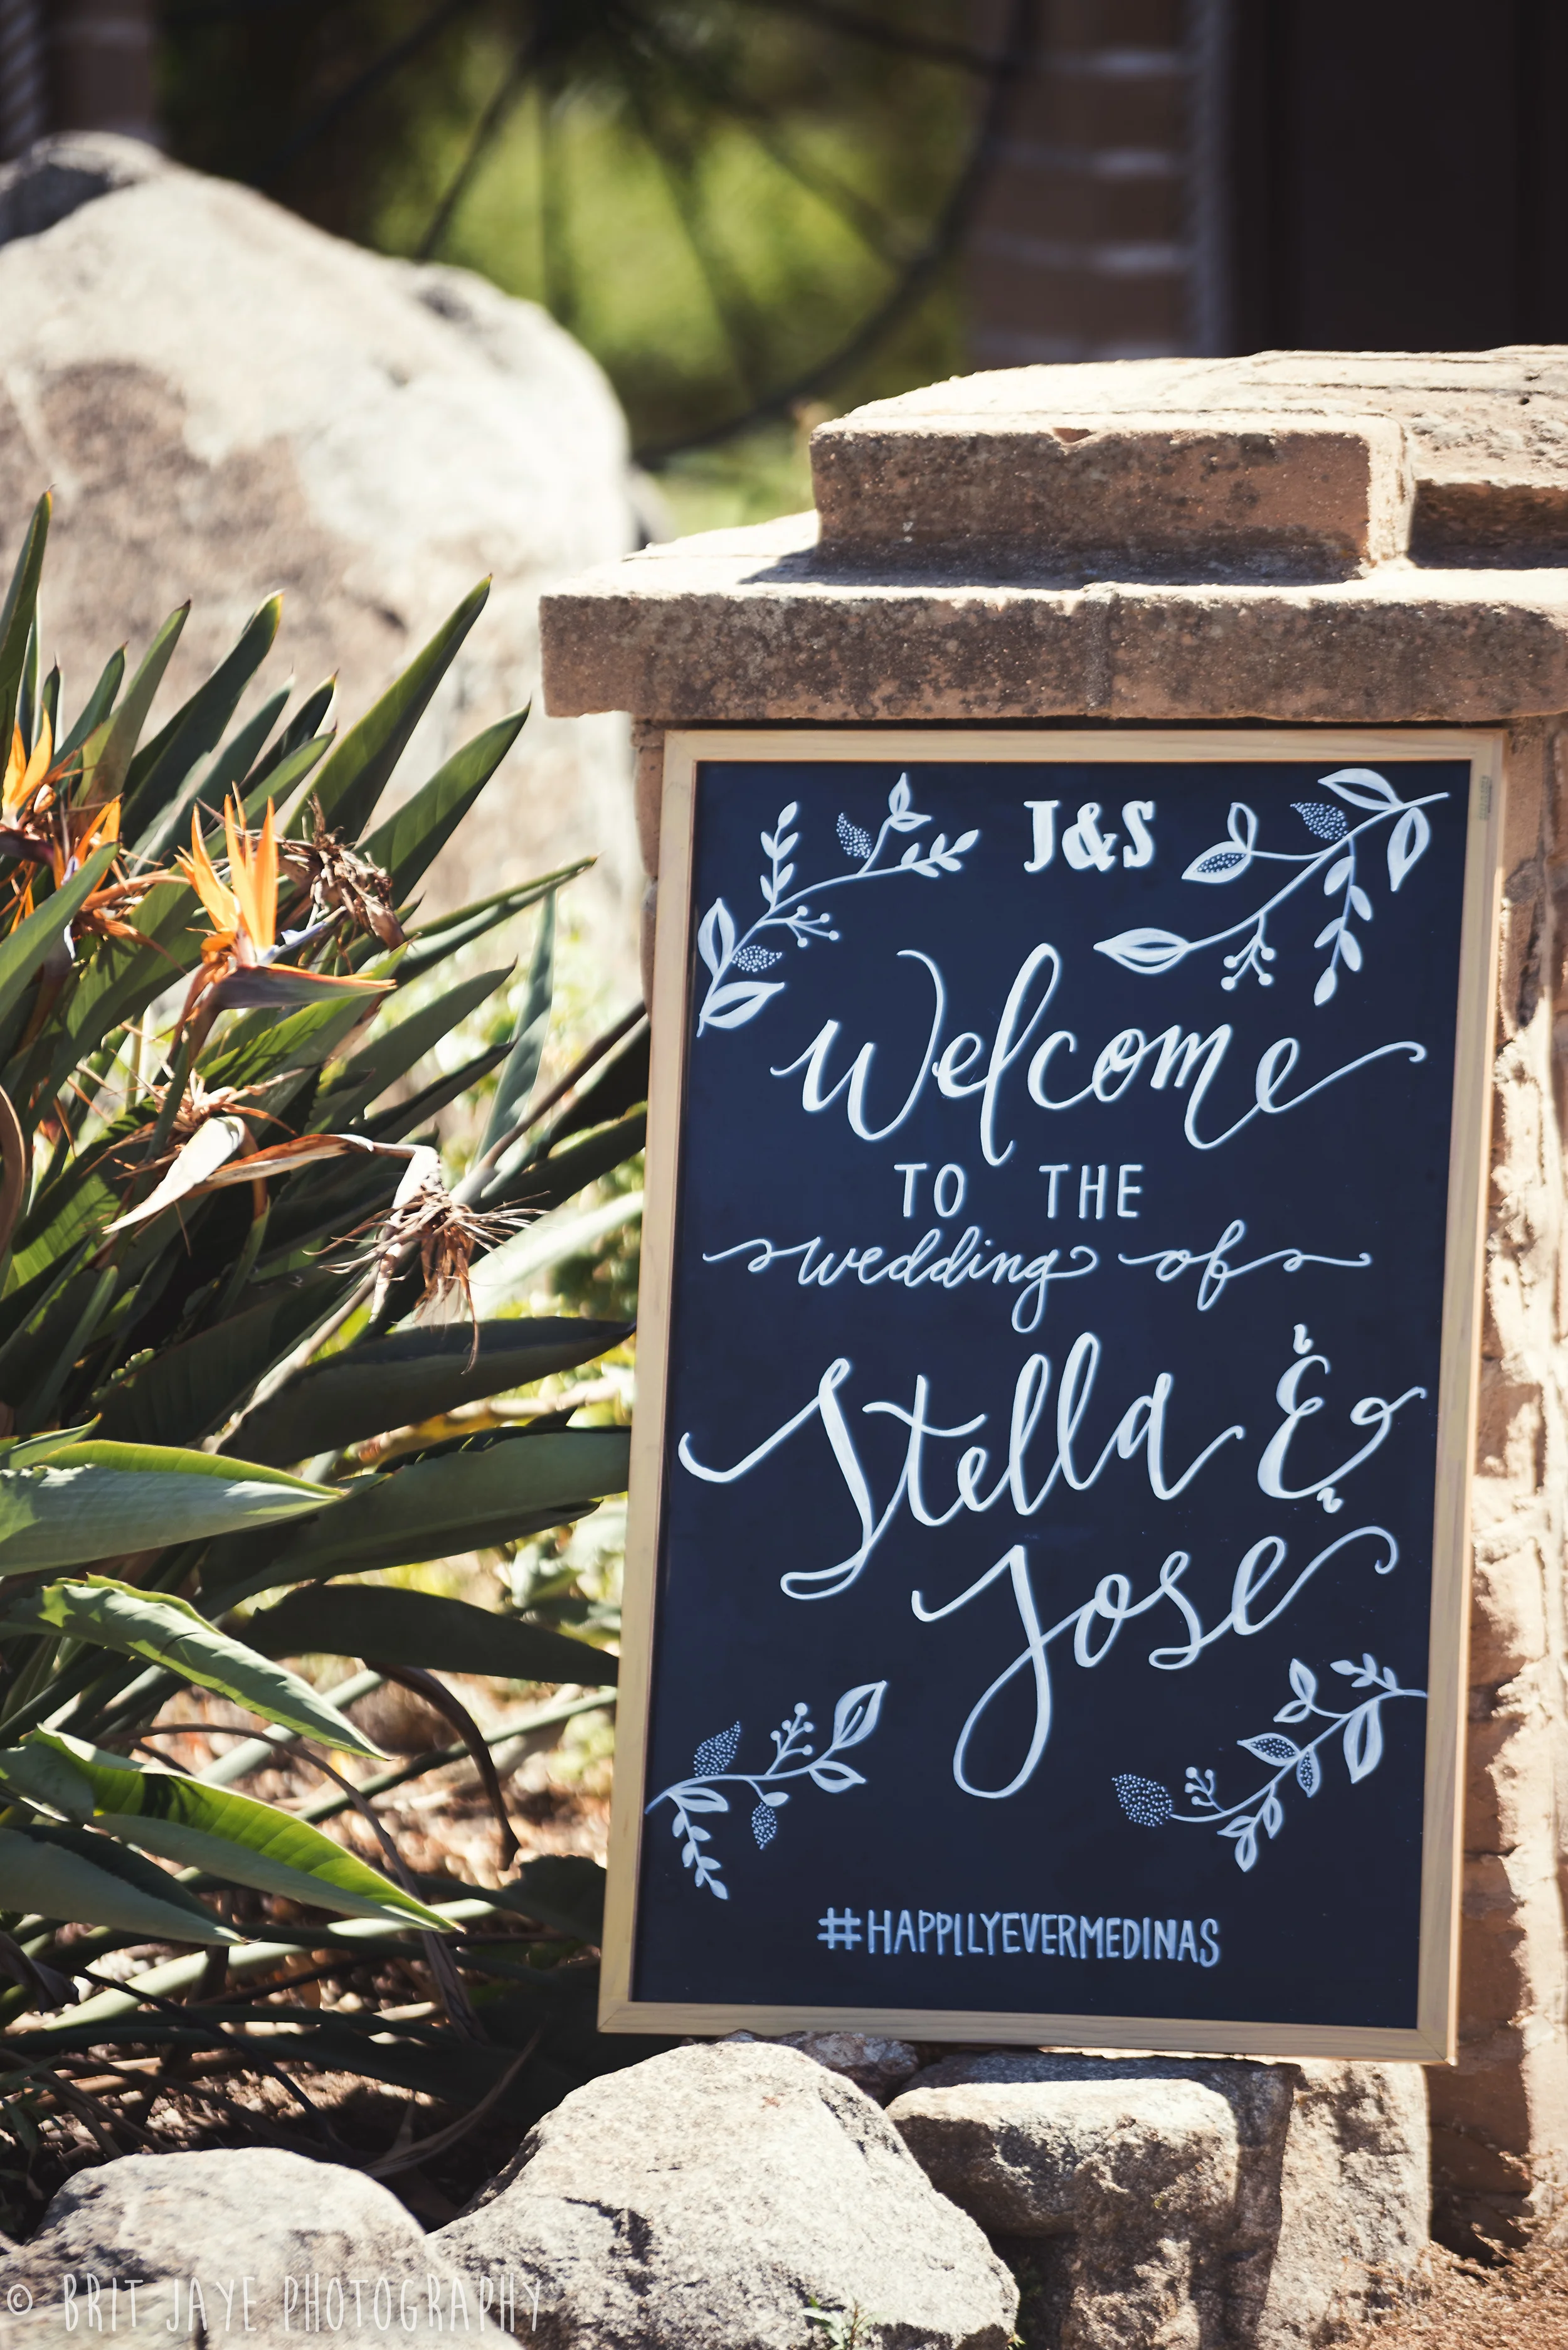 J&S
Welcome
TO THE
wedding of
Stella &
Jose
#HAPPILYEVERMEDINAS
© BRIT JAYE PHOTOGRAPHY